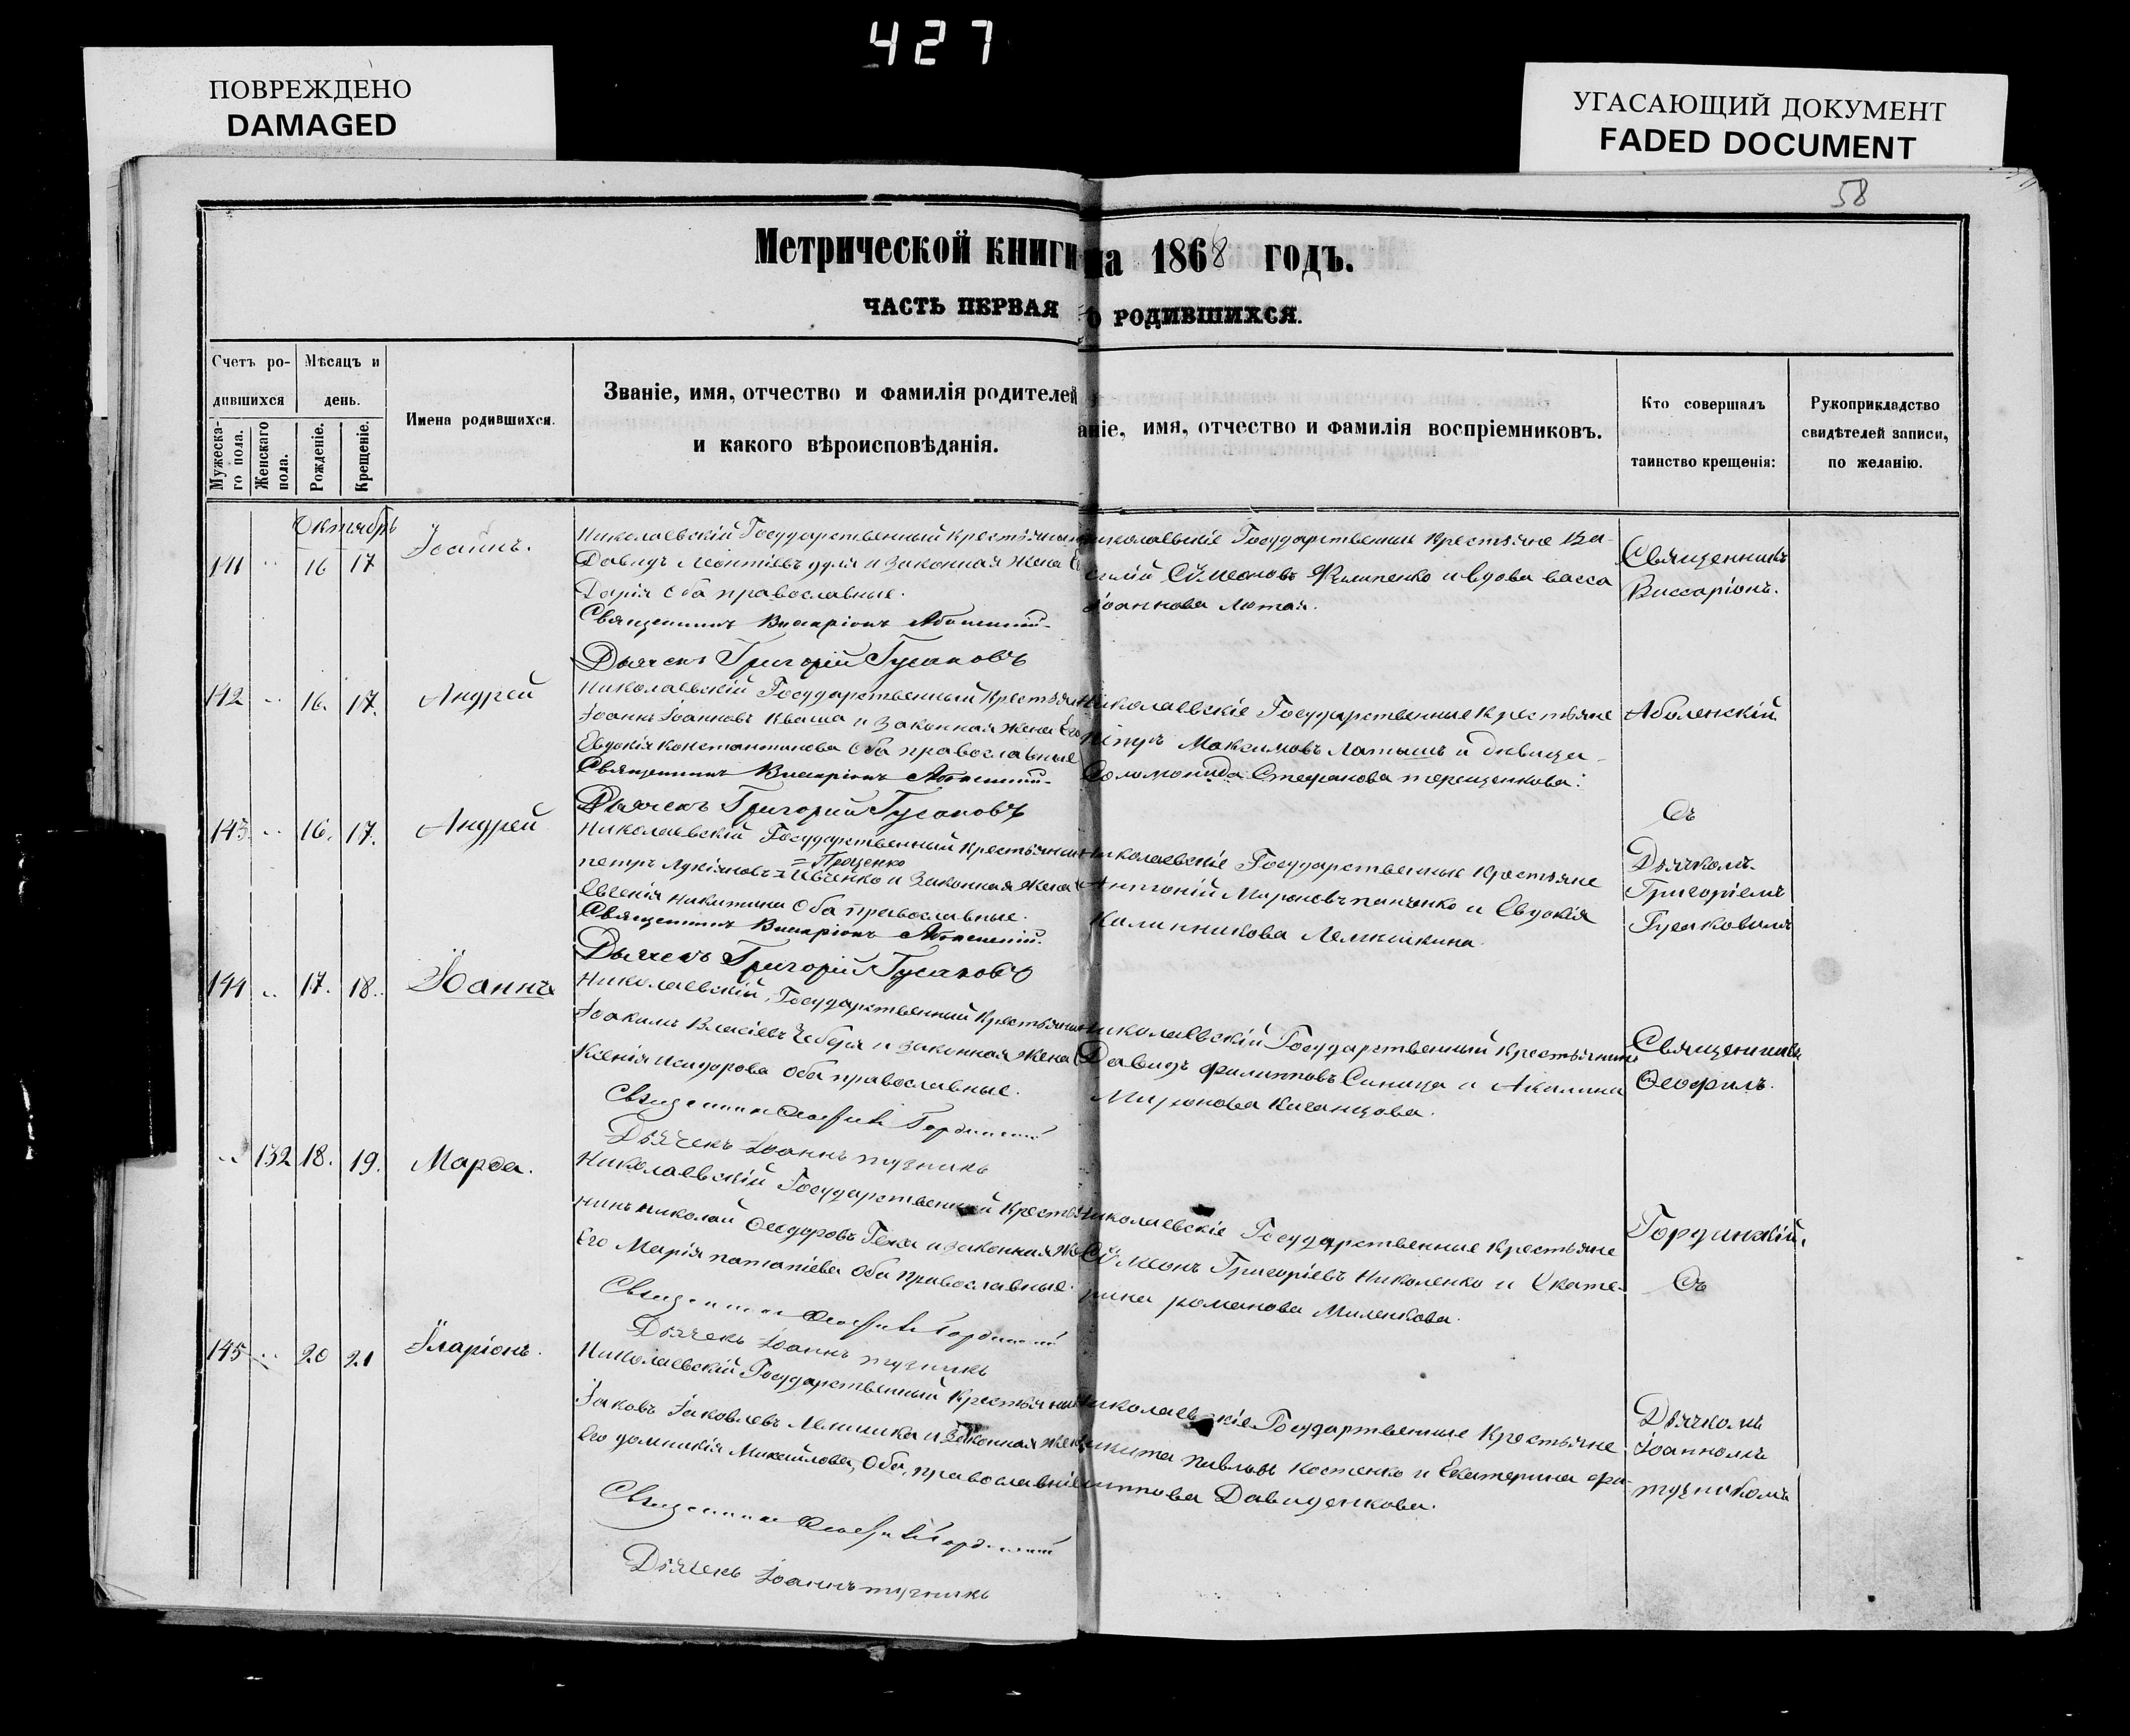 427
ПОВРЕЖДЕНО
DAMAGED
УГАСАЮЩИЙ ДОКУМЕНТ
FADED DOCUMENT
58
Метрической книги на 1868 годъ.
ЧАСТЬ ПЕРВАЯ О РОДИВШИХСЯ.
Счетъ родившихся
Мужескаго пола.
Женскаго пола.
Мѣсяцъ и день.
Рожденіе.
Крещеніе.
Имена родившихся.
Званіе, имя, отчество и фамилія родителей
и какого вѣроисповѣданія.
аніе, имя, отчество и фамилія воспріемниковъ.
Кто совершалъ
таинство крещенія:
Рукоприкладство
свидѣтелей записи,
по желанію.
Октябрь
141 16 17 Іоаннъ.
Николаевскій Государственный крестьянин
Давидъ Леонтіевъ и законная жена Е
Дарія оба православные.
Священникъ Виссаріонъ
Дьячекъ Григорій Гусаковъ
Николаевскіе Государственные крестьяне Ва-
силій Сѵмеоновъ Филипенко и вдова Васса
Іоаннова Лютая.
Священникъ
Виссаріонъ.
142 16. 17. Андрей
Николаевскій Государственный крестьян
Іоаннъ Іоанновъ Кваша и законная жена его
Евдокія Константинова оба православные
Священникъ Виссаріонъ
Дьячекъ Григорій Гусаковъ
Николаевскіе Государственные крестьяне
Петръ Максимовъ Латышъ и дѣвица
Соломонида Стефанова Терещенкова.
Аболенскій
143 16. 17. Андрей
Николаевскій Государственный крестьянин
= Проценко
Петръ Лукіяновъ = и законная жена
Евгенія Никитина оба православные.
Священникъ Виссаріонъ
Дьячекъ Григорій Гусаковъ
Николаевскіе Государственные крестьяне
Антоній Мироновъ Панченко и Евдокія
Калинникова Лемишкина.
Съ
Дьячкомъ
Григоріемъ
Гусаковымъ
144 17. 18. Іоаннъ
Николаевскій Государственный крестьянин
Іоакимъ Власіевъ и законная жена
Ксенія Исидорова оба православные.
Священникъ Ѳеофилъ
Дьячекъ Іоаннъ
Николаевскій Государственный крестьянинъ
Давидъ Филипповъ Синица и Акилина
Миронова
Священникъ
Ѳеофилъ.
132 18. 19. Марѳа.
Николаевскій Государственный крестья
нинъ Николай Ѳеодоровъ и законная же
его Марія оба православные.
Священникъ Ѳеофилъ
Дьячекъ Іоаннъ
Николаевскіе Государственные крестьяне
Сѵмеонъ Григоріевъ Николенко и Екате-
рина Романова Миленкова.
Съ
145 20 21 Иларіонъ.
Николаевскій Государственный крестьянин
Іаковъ Іаковлевъ Лемишка и законная жена
его Домникія Михайлова, оба православніе
Священникъ Ѳеофилъ
Дьячекъ Іоаннъ
Николаевскіе Государтвенные крестьяне
Никита Павловъ Костенко и Екатерина Фи-
липпова Давиденкова.
Дьячкомъ
Іоанномъ